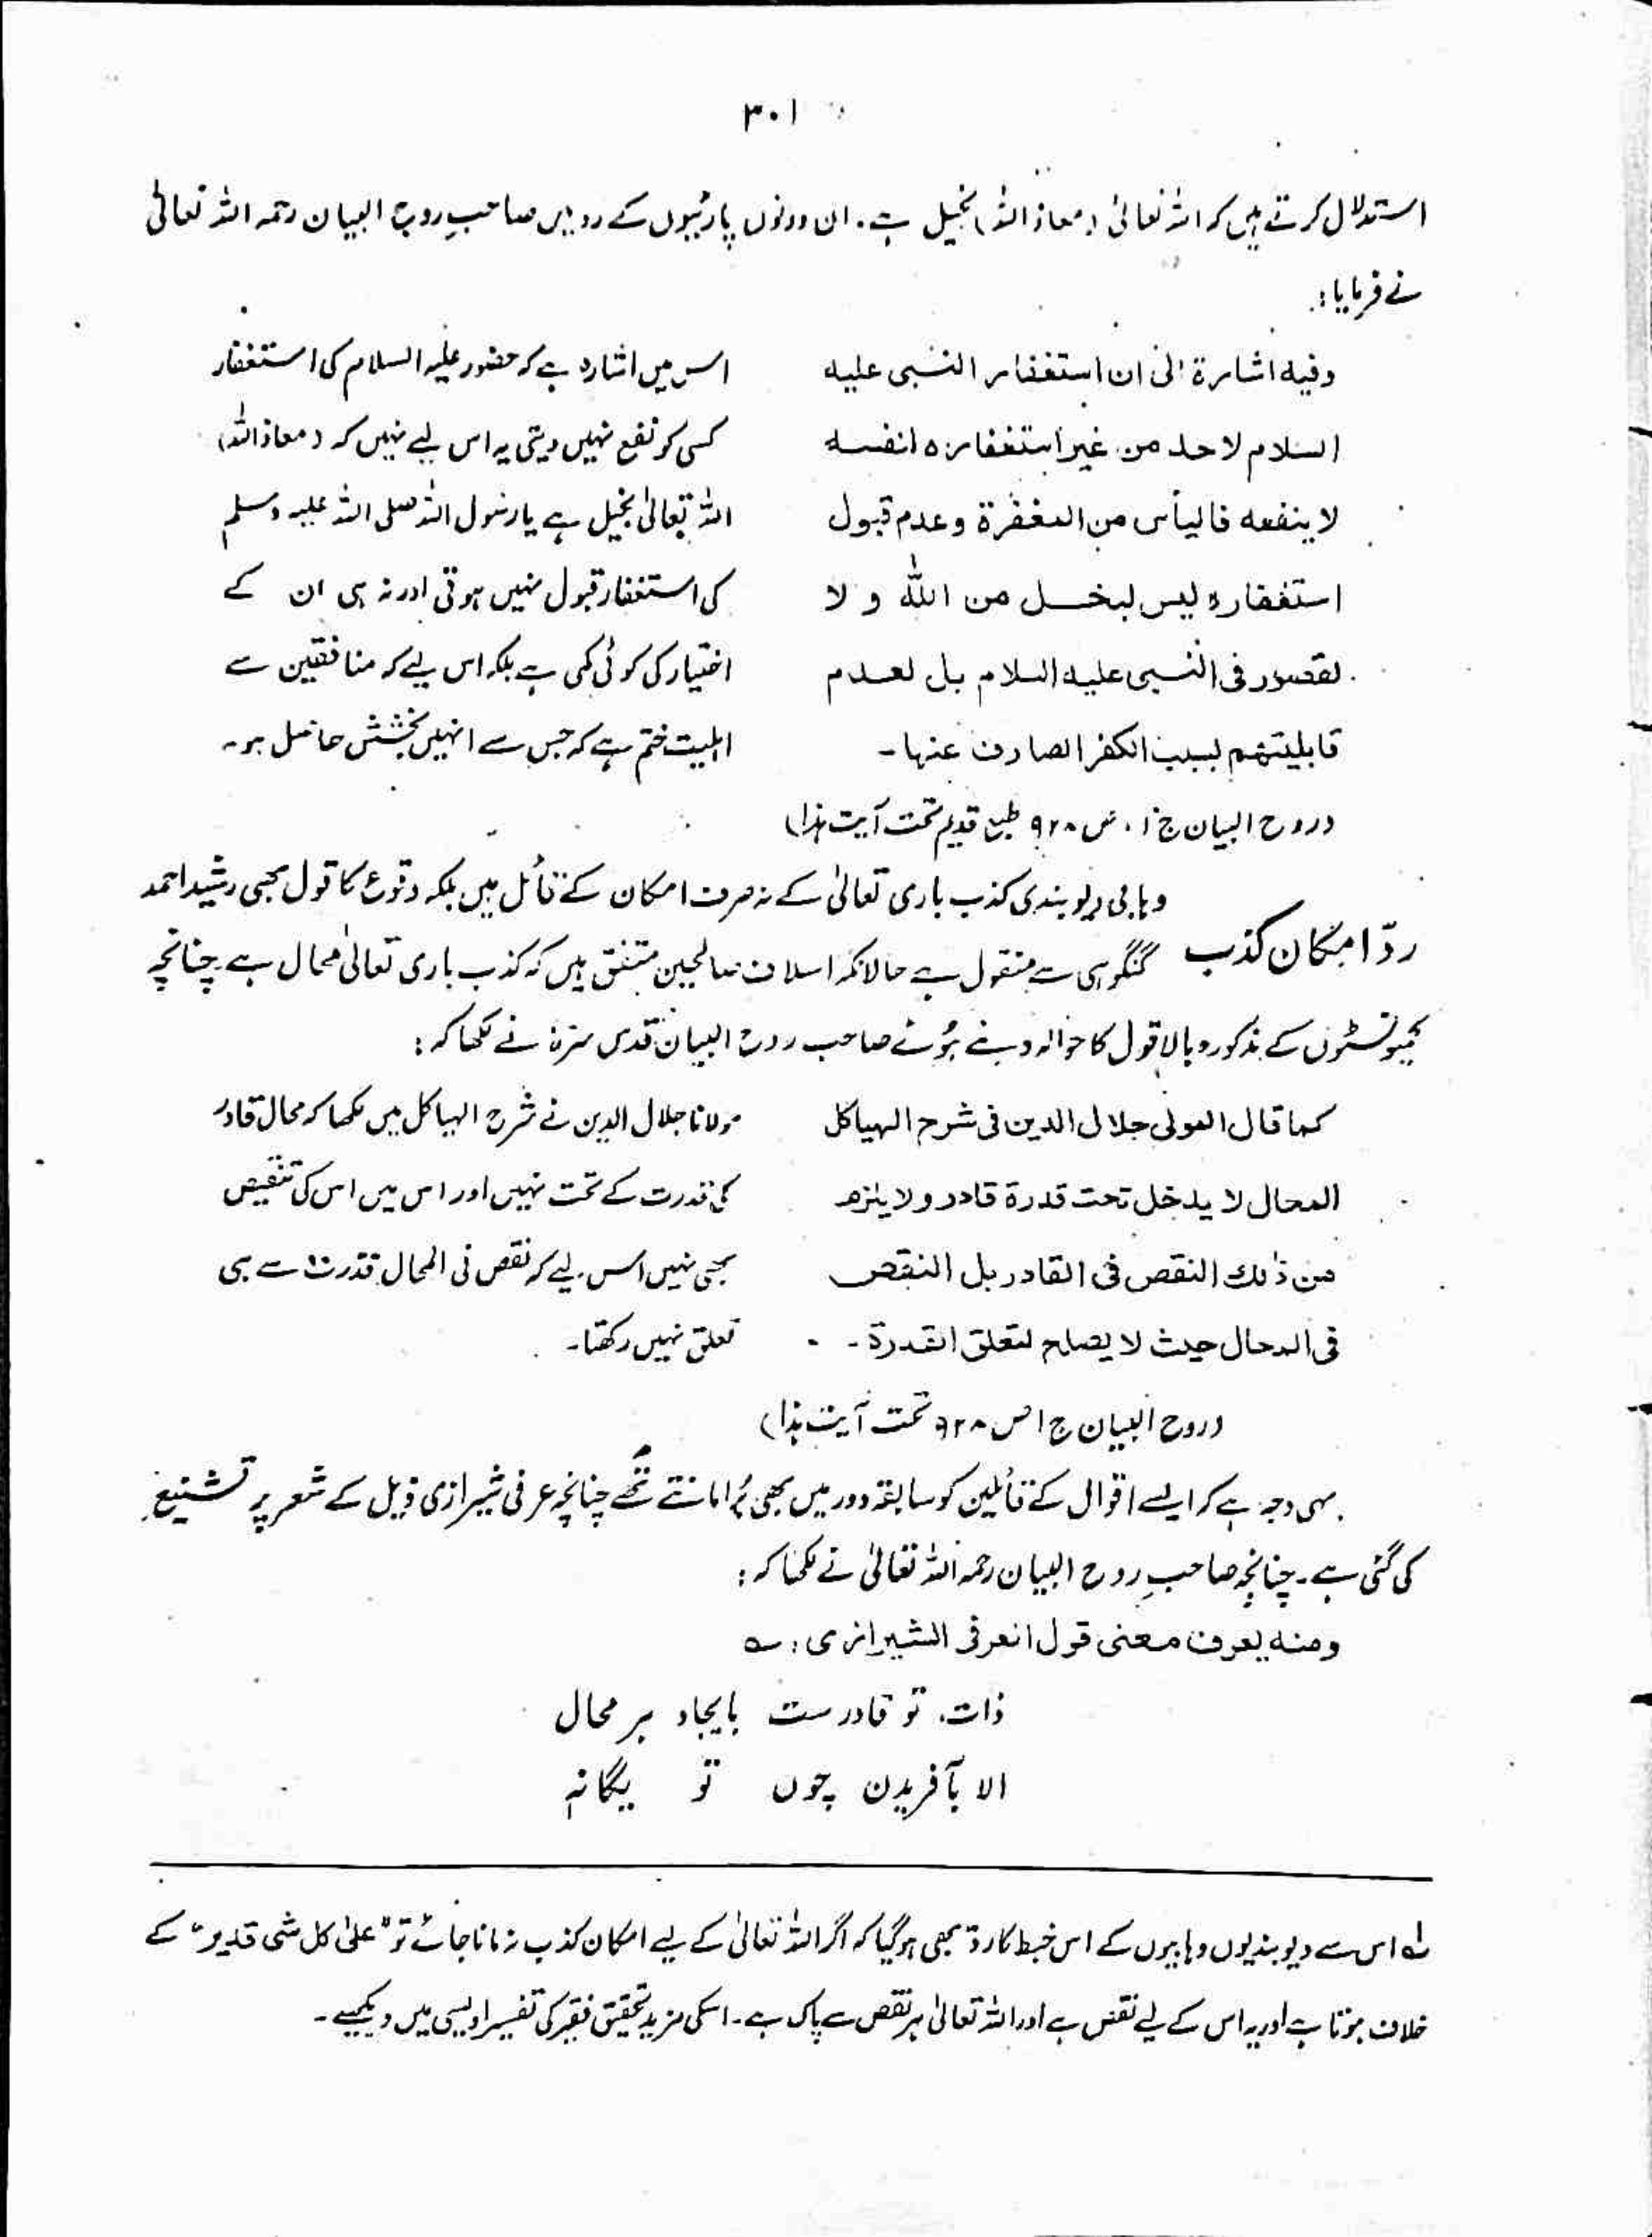 ۳۰۱
استدلال کرتے ہیں کہ اللہ تعالیٰ (معاذ اللہ) بخیل ہے۔ ان دونوں پارٹیوں کے رد میں صاحبِ روح البیان رحمہ اللہ تعالیٰ
نے فرمایا:
وفیه اشارة الی ان استغفار النبی علیه
السلام لاحد من غیر استغفاره لنفسه
لا ینفعه فالیأس من المغفرة وعدم قبول
استغفاره لیس لبخل من الله و لا
لقصور فی النبی علیه السلام بل لعدم
قابلیتهم بسبب الکفر الصارف عنها۔
اس میں اشارہ ہے کہ حضور علیہ السلام کی استغفار
کسی کو نفع نہیں دیتی یہ اس لیے نہیں کہ (معاذ اللہ)
اللہ تعالیٰ بخیل ہے یا رسول اللہ صلی اللہ علیہ وسلم
کی استغفار قبول نہیں ہوتی اور نہ ہی ان کے
اختیار کی کوئی کمی ہے بلکہ اس لیے کہ منافقین سے
اہلیت ختم ہے کہ جس سے انہیں بخشش حاصل ہو۔
(روح البیان ج ۱، ص ۹۲۸ طبع قدیم تحت آیت ہذا)
ردّ امکان کذب
وہابی دیوبندی کذب باری تعالیٰ کے نہ صرف امکان کے قائل ہیں بلکہ وقوع کا قول بھی رشید احمد
گنگوہی سے منقول ہے حالانکہ اسلاف صالحین متفق ہیں کہ کذب باری تعالیٰ محال ہے چنانچہ
کمیونسٹوں کے مذکورہ بالا قول کا حوالہ دیتے ہُوئے صاحب روح البیان قدس سرہٗ نے لکھا کہ:
کما قال المولی جلال الدین فی شرح الهیاکل
المحال لا یدخل تحت قدرة قادر ولا یلزم
من ذٰلك النقص فی القادر بل النقص
فی المحال حیث لا یصلح لتعلق القدرة۔
مولانا جلال الدین نے شرح الہیاکل میں لکھا کہ محال قادر
کی قدرت کے تحت نہیں اور اس میں اس کی تنقیص
بھی نہیں اس لیے کہ نقص فی المحال قدرت سے ہی
تعلق نہیں رکھتا۔
(روح البیان ج ۱ ص ۹۲۸ تحت آیت ہذا)
یہی وجہ ہے کہ ایسے اقوال کے قائلین کو سابقہ دور میں بھی بُرا مانتے تھے چنانچہ عرفی شیرازی ذیل کے شعر پر تشنیع
کی گئی ہے۔ چنانچہ صاحبِ روح البیان رحمہ اللہ تعالیٰ نے لکھا کہ:
ومنه یعرف معنی قول العرفی الشیرازی: ؎
ذات تو قادرست بایجاد ہر محال
الا بآفریدن چوں تو یگانہ
لہ اس سے دیوبندیوں وہابیوں کے اس خبط کا ردّ بھی ہو گیا کہ اگر اللہ تعالیٰ کے لیے امکان کذب نہ مانا جائے تو "علیٰ کل شی قدیر" کے
خلاف ہوتا ہے اور یہ اس کے لیے نقص ہے اور اللہ تعالیٰ ہر نقص سے پاک ہے۔ اسکی مزید تحقیق فقیر کی تفسیر اویسی میں دیکھیے۔